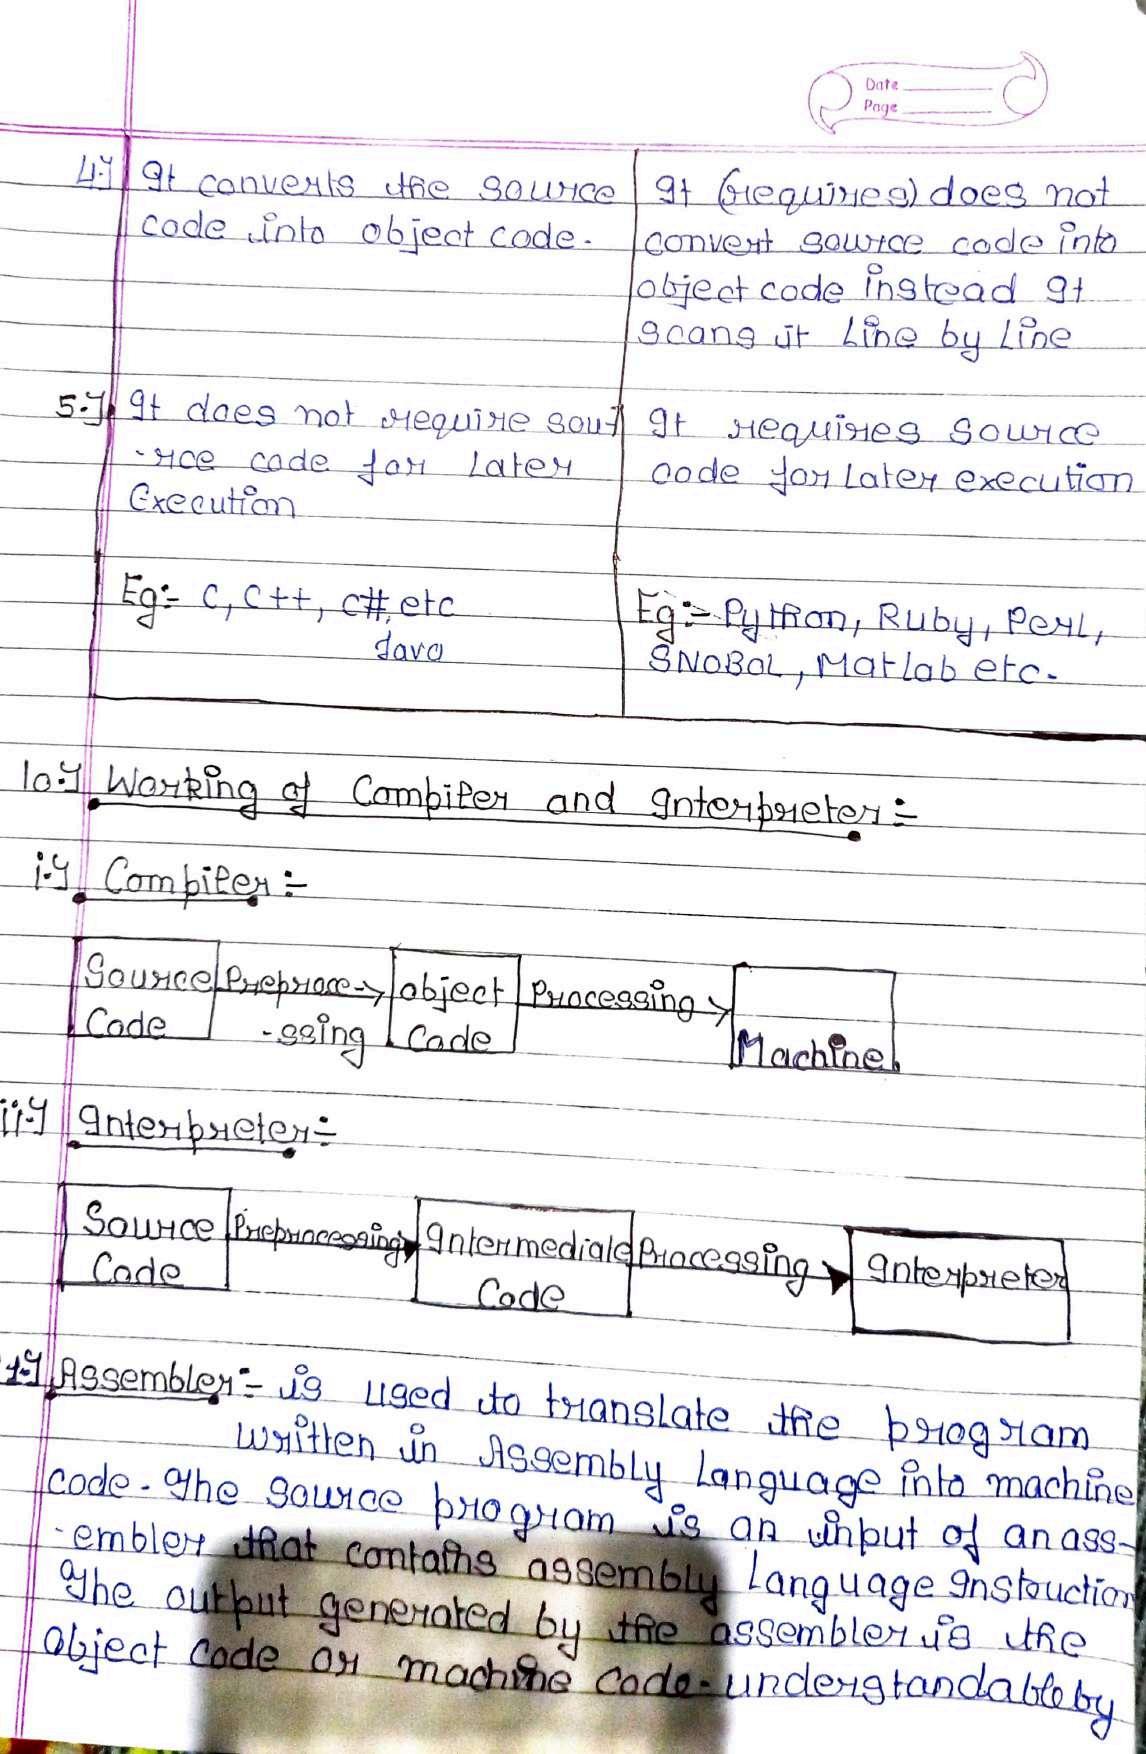 Date
Page
4.) It converts the source
code into object code.
It (requires) does not
convert source code into
object code instead It
scans it Line by Line
5.) It does not require sou
-rce code for Later
Execution
It requires source
code for Later execution
Eg:- C, C++, C#, etc
Java
Eg:- Python, Ruby, Perl,
SNOBOL, Matlab etc.
10.) Working of Compiler and Interpreter:-
i.) Compiler:-
Source
Code
Preproce-
-ssing
object
Code
Processing
Machine
ii.) Interpreter:-
Source
Code
Preprocessing
Intermediate
Code
Processing
Interpreter
Assembler:- is used to translate the program
written in Assembly Language into machine
code. The source program is an input of an ass-
-embler that contains assembly Language Instruction
The output generated by the assembler is the
object code or machine code. understandable by